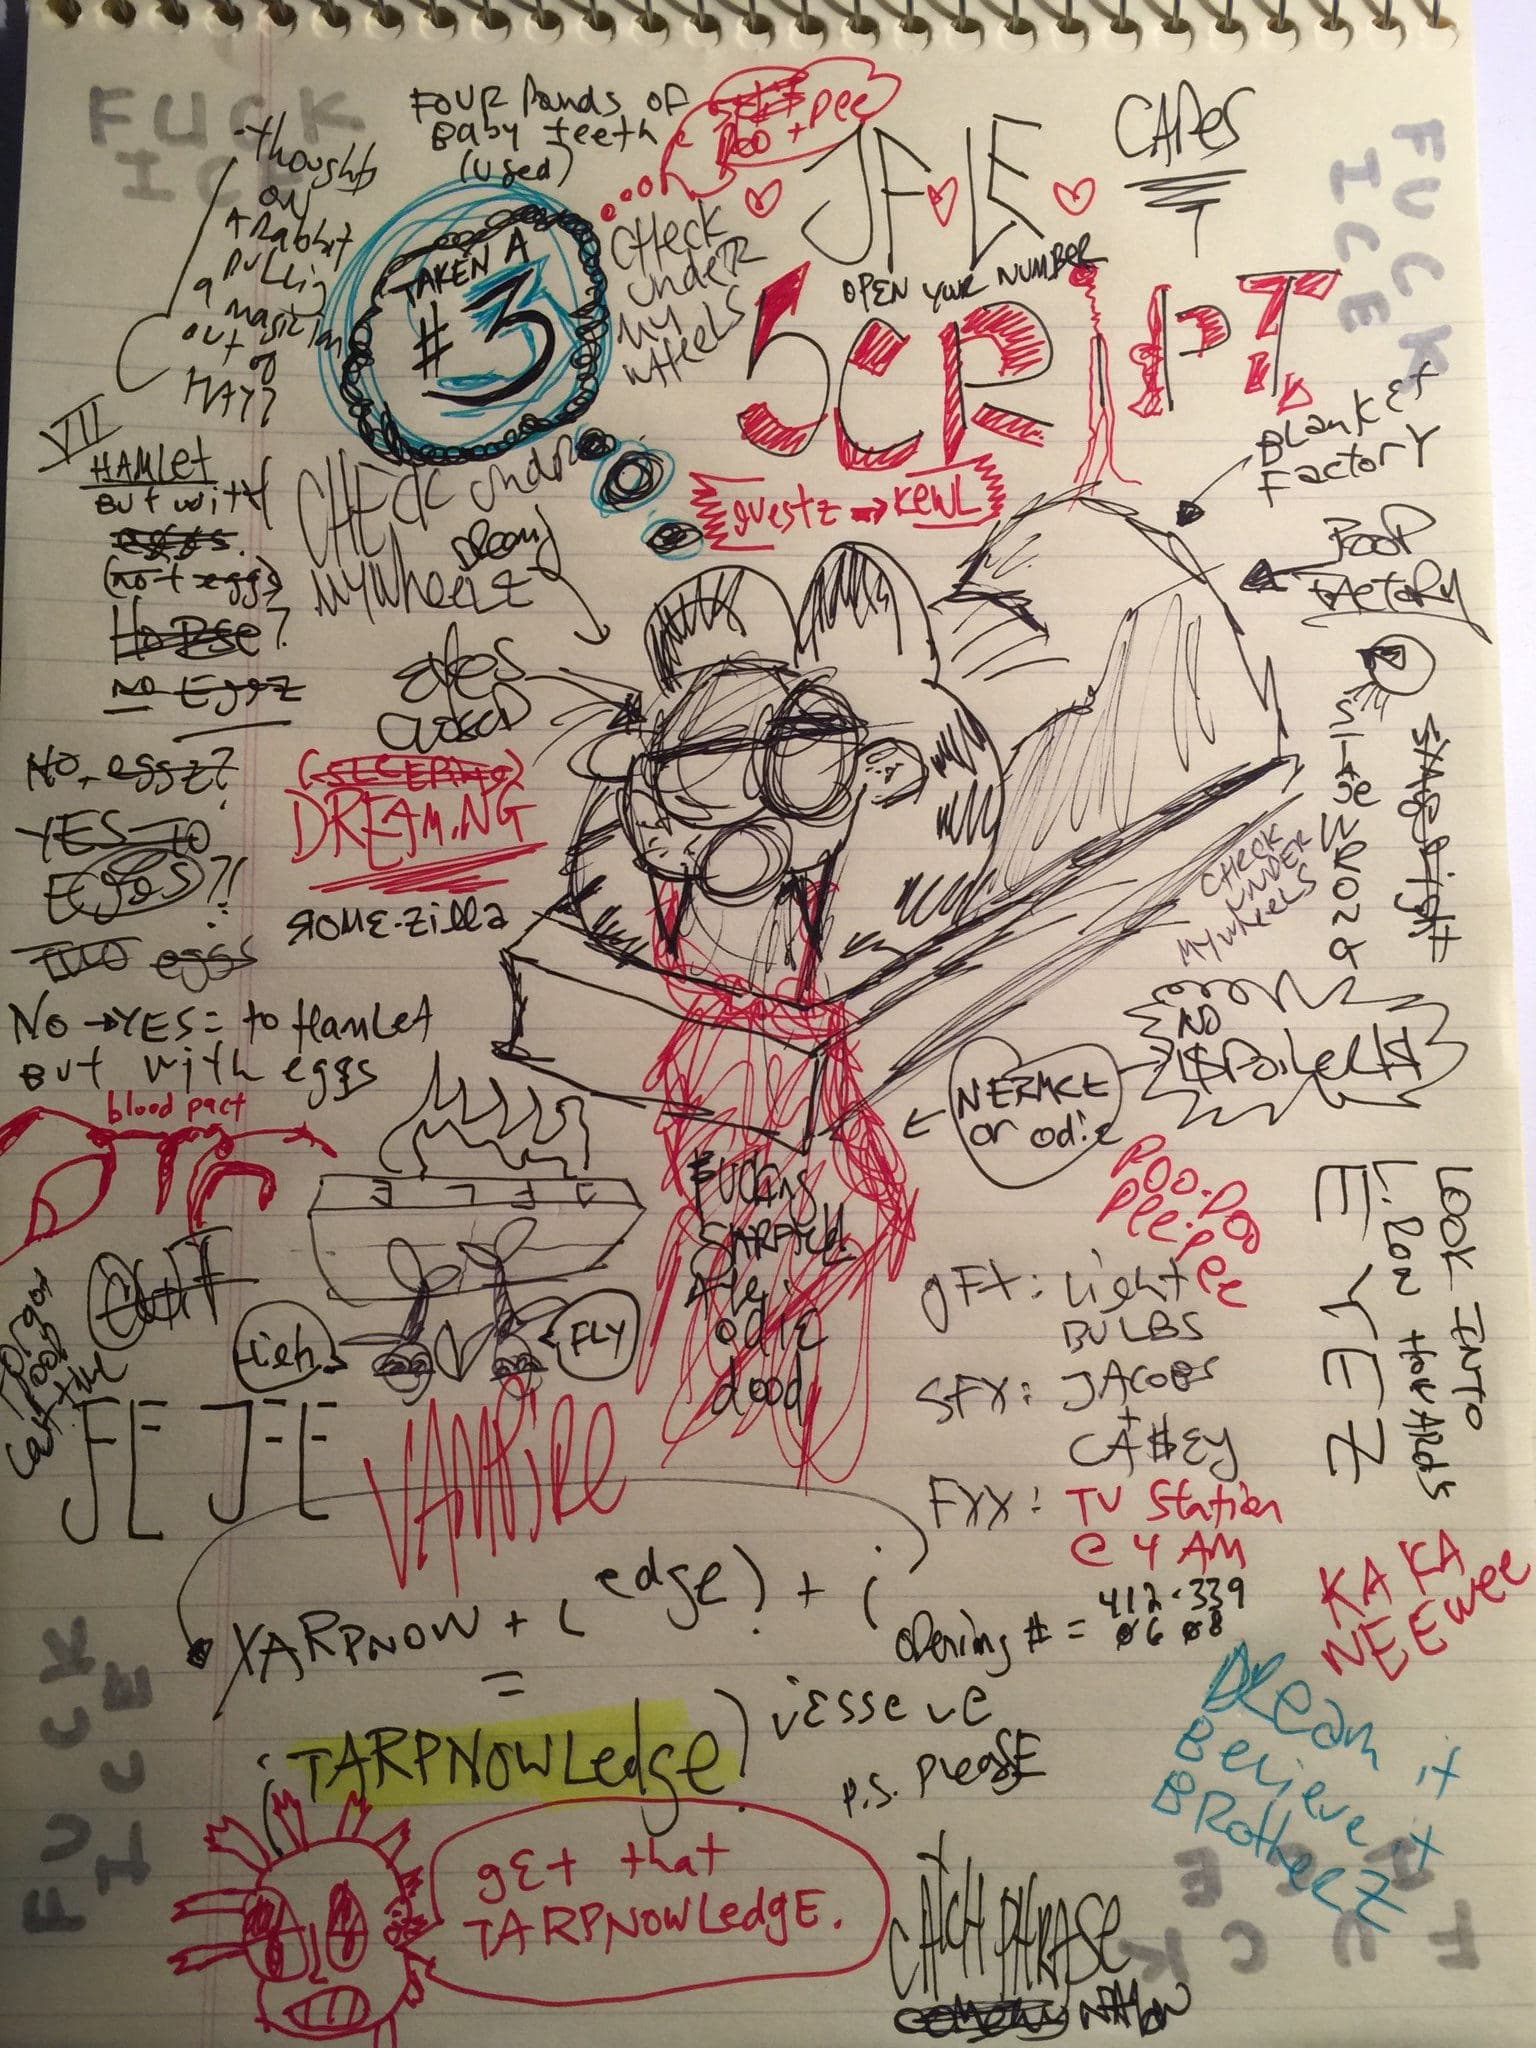 FUCK
ICE
FOUR Pounds OF
Baby teeth
(used)
Poo + Pee
JFLE
CAPES
FUCK
ICE
-thoughts
on
A Rabbit
Pulling
a magician
out of
HAT?
TAKEN A
#3
CHECK
UNDER
MY
WHEELS
OPEN YOUR NUMBER
SCRIPT
guestz → KEWL
BLANKET
FACTORY
POOP
FACTORY
VII
HAMLET
But with
eggs.
(not eggs)
HORSE?
NO EGGZ
CHECK under
MY Wheelz
eyes
closed
(SLEEPING)
DREAMING
ROME-zilla
NO, eggz?
YES TO
EGGS?!
TWO eggs
NO → YES = to Hamlet
But with eggs
STAGE WRONG
STAGE right
CHECK
UNDER
MY wheels
NO
$POILER$
NERMLE
or odie
blood pact
JFLE
FLY
Fucking
GARFIELD
odie
dood
POO-POO
Pee-Pee
GFX: Light
BULBS
SFX: JACOBS
+
CA$EY
FXX: TV Station
@ 4 AM
LOOK INTO
L. RON HOWARDS
EYEZ
VAMPiRe
XARPNOW + (edge) + i
=
(TARPNOWLedge)
opening # = 412-339
0608
KA KA
NEE wee
jesse ve
P.S. PleasE
DReam it
Believe it
BRotherZ
get that
TARPNOWLedgE.
CATCH PHRASE
FUCK
ICE
FUCK
ICE